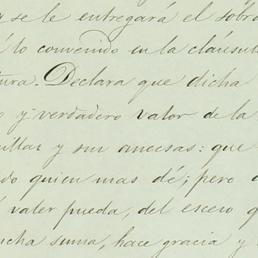 se le entregará el sobra
lo convenido en la cláusul
tura. Declara que dicha
o y verdadero valor de la
ullas y sus anecsas: que
do quien mas dé; pero
valer pueda, del esceso q
icha suma, hace gracia y